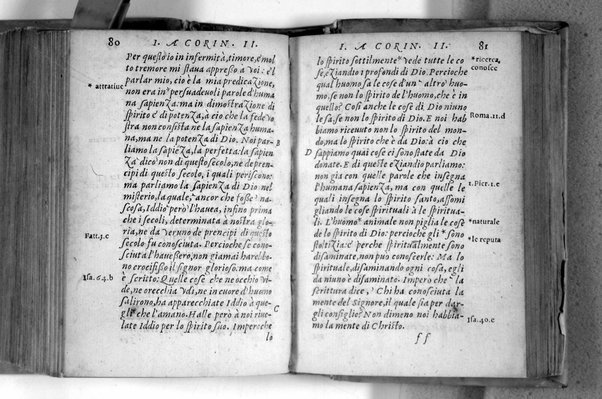 80 I. A CORIN. II.
Per questo io in infermità, timore, è mol
to tremore mi stava appresso a voi: è'l
parlar mio, cio è la mia predicazione,
* attrative
non era in* persuadevoli parole d'huma
na sapienza: ma in dimostrazione di
spirito è di potenza, à cio che la fede vo
stra non consista ne la sapienza huma-
na, ma ne la potenza di Dio. Noi par-
B
liamo la sapienza, la perfetta: la sapien
za dico non di questo secolo, ne de pren-
cipi di questo secolo, i quali periscono:
ma parliamo la sapienza di Dio nel
misterio, la quale, ancor che fosse na-
scosa, Iddio però l'havea, infino prima
che i secoli, determinata à nostra glo-
Fatt.3.c
ria, ne da veruno de prencipi di questo
secolo fu conosciuta. Percioche se cono-
sciuta l'havessero, non giamai harebbo-
no crocifisso il signor glorioso. ma come
Isa.64.b
è scritto: Quelle cose che ne occhio vi-
de, ne orecchia vdi, ne in cuore d'huomo
salirono, ha apparecchiate Iddio à que-
C
gli che l'amano. Halle però à noi rive-
late Iddio per lo spirito suo. Imperoche
lo
I. A CORIN. II. 81
lo spirito sottilmente* vede tutte le co
* ricerca,
conosce
se, eziandio i profondi di Dio. Percioche
qual huomo sa le cose d'un altro huo-
mo, se non lo spirito de l'huomo, che è in
quello? Cosi anche le cose di Dio niuno
le sa, se non lo spirito di Dio. E noi hab
Roma.11.d
biamo ricevuto non lo spirito del mon-
do, ma lo spirito che è da Dio: à cio che
D
sappiamo quai cose ci sono state da Dio
donate. E di queste eziandio parliamo:
non gia con quelle parole che insegna
l'humana sapienza, ma con quelle le
1.Piet.1.c
quali insegna lo spirito santo, assomi
gliando le cose spirituali à le spiritua-
li. L'huomo* animale non piglia le cose
* naturale
de lo spirito di Dio: percioche gli* sono
* le reputa
stoltizia: è perche spiritualmente sono
disaminate, non può conoscerle: Ma lo
spirituale, disaminando ogni cosa, egli
da niuno è disaminato. Impero che la
scrittura dice, Chi ha conosciuta la
mente del Signore, il quale sia per dar-
gli consiglio? Non dimeno noi habbia-
Isa.40.c
mo la mente di Christo.
ff